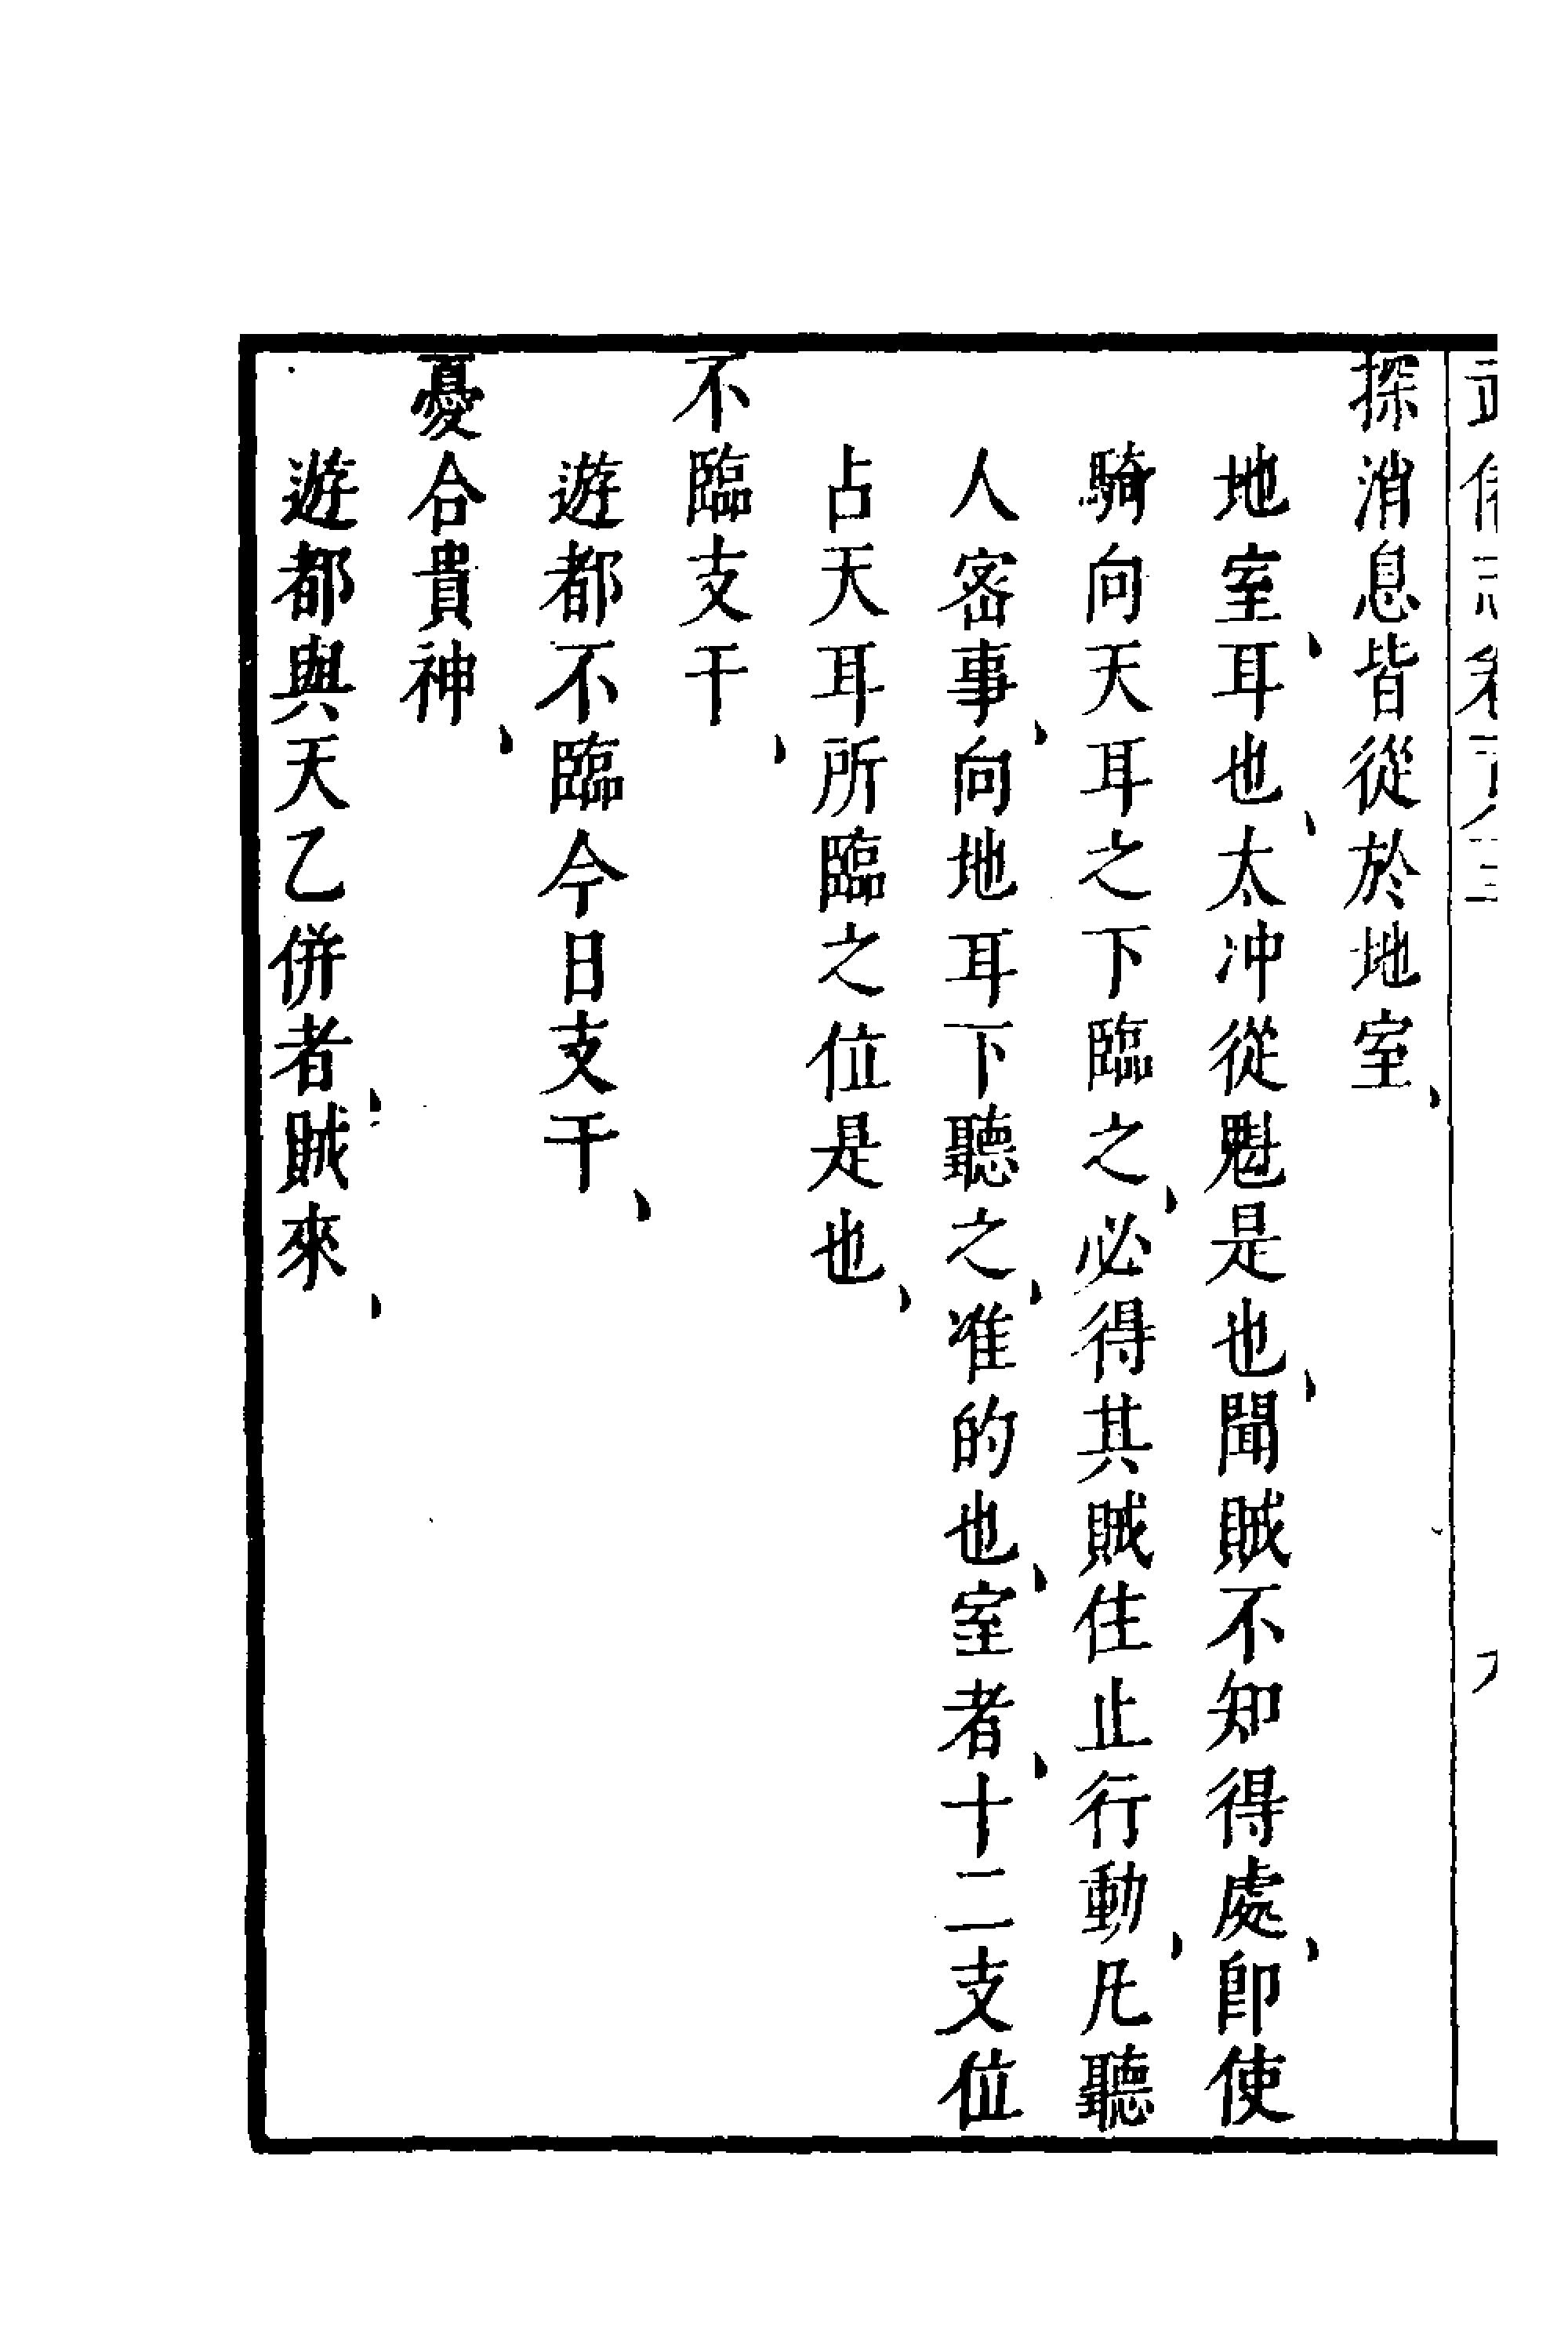 探消息皆從於地室、
地室、耳也、太冲從魁是也、聞賊不知得處、卽使
騎向天耳之下臨之、必得其賊住止行動、凡聽
人密事、向地耳下聽之、准的也、室者、十二支位
占天耳所臨之位是也、
不臨支干、
遊都不臨今日支干、
憂合貴神、
遊都與天乙併者、賊來、